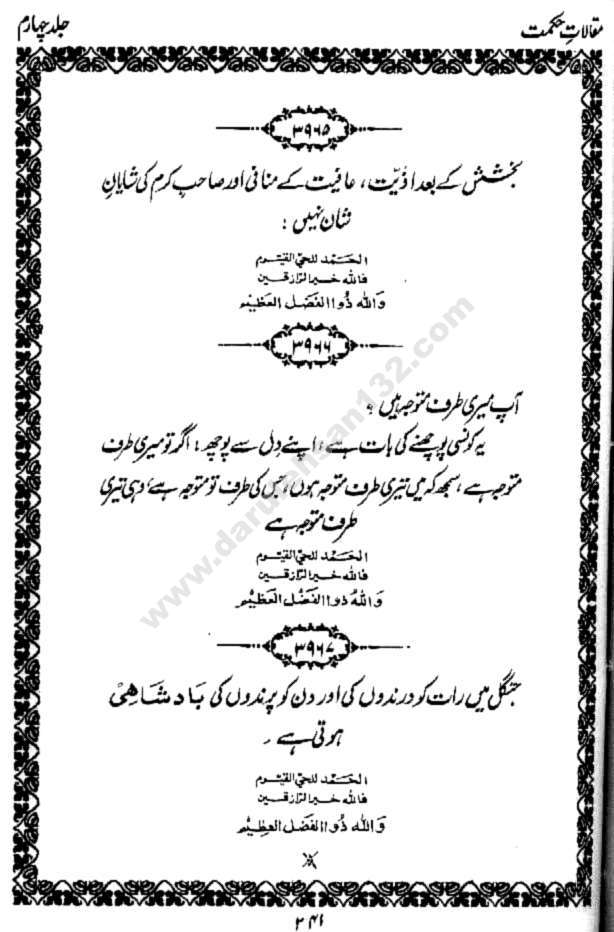 مقالاتِ حکمت
جلد چہارم
۳۹۶۵
بخشش کے بعد اذیّت، عافیت کے منافی اور صاحبِ کرم کی شایانِ
شان نہیں :
الحَمد للحیّ القیّوم
فاللہ خیر الرّازقین
وَاللہ ذُوا الفَضل العَظِیْم
۳۹۶۶
آپ میری طرف متوجہ ہیں ؟
یہ کونسی پوچھنے کی بات ہے؛ اپنے دِل سے پوچھ؛ اگر تو میری طرف
متوجہ ہے، سمجھ کہ میں تیری طرف متوجہ ہوں، جس کی طرف تو متوجہ ہے، وہی تیری
طرف متوجہ ہے
الحَمد للحیّ القیّوم
فاللہ خیر الرّازقین
وَاللہُ ذُوا الفَضْل العَظِیْم
۳۹۶۷
جنگل میں رات کو درندوں کی اور دن کو پرندوں کی بَادشَاهِیْ
ہوتی ہے ۔
الحَمد للحیّ القیّوم
فاللہ خیر الرّازقین
وَاللہ ذُوا الفَضل العَظِیْم
۲۴۱
www.darulehsan132.com